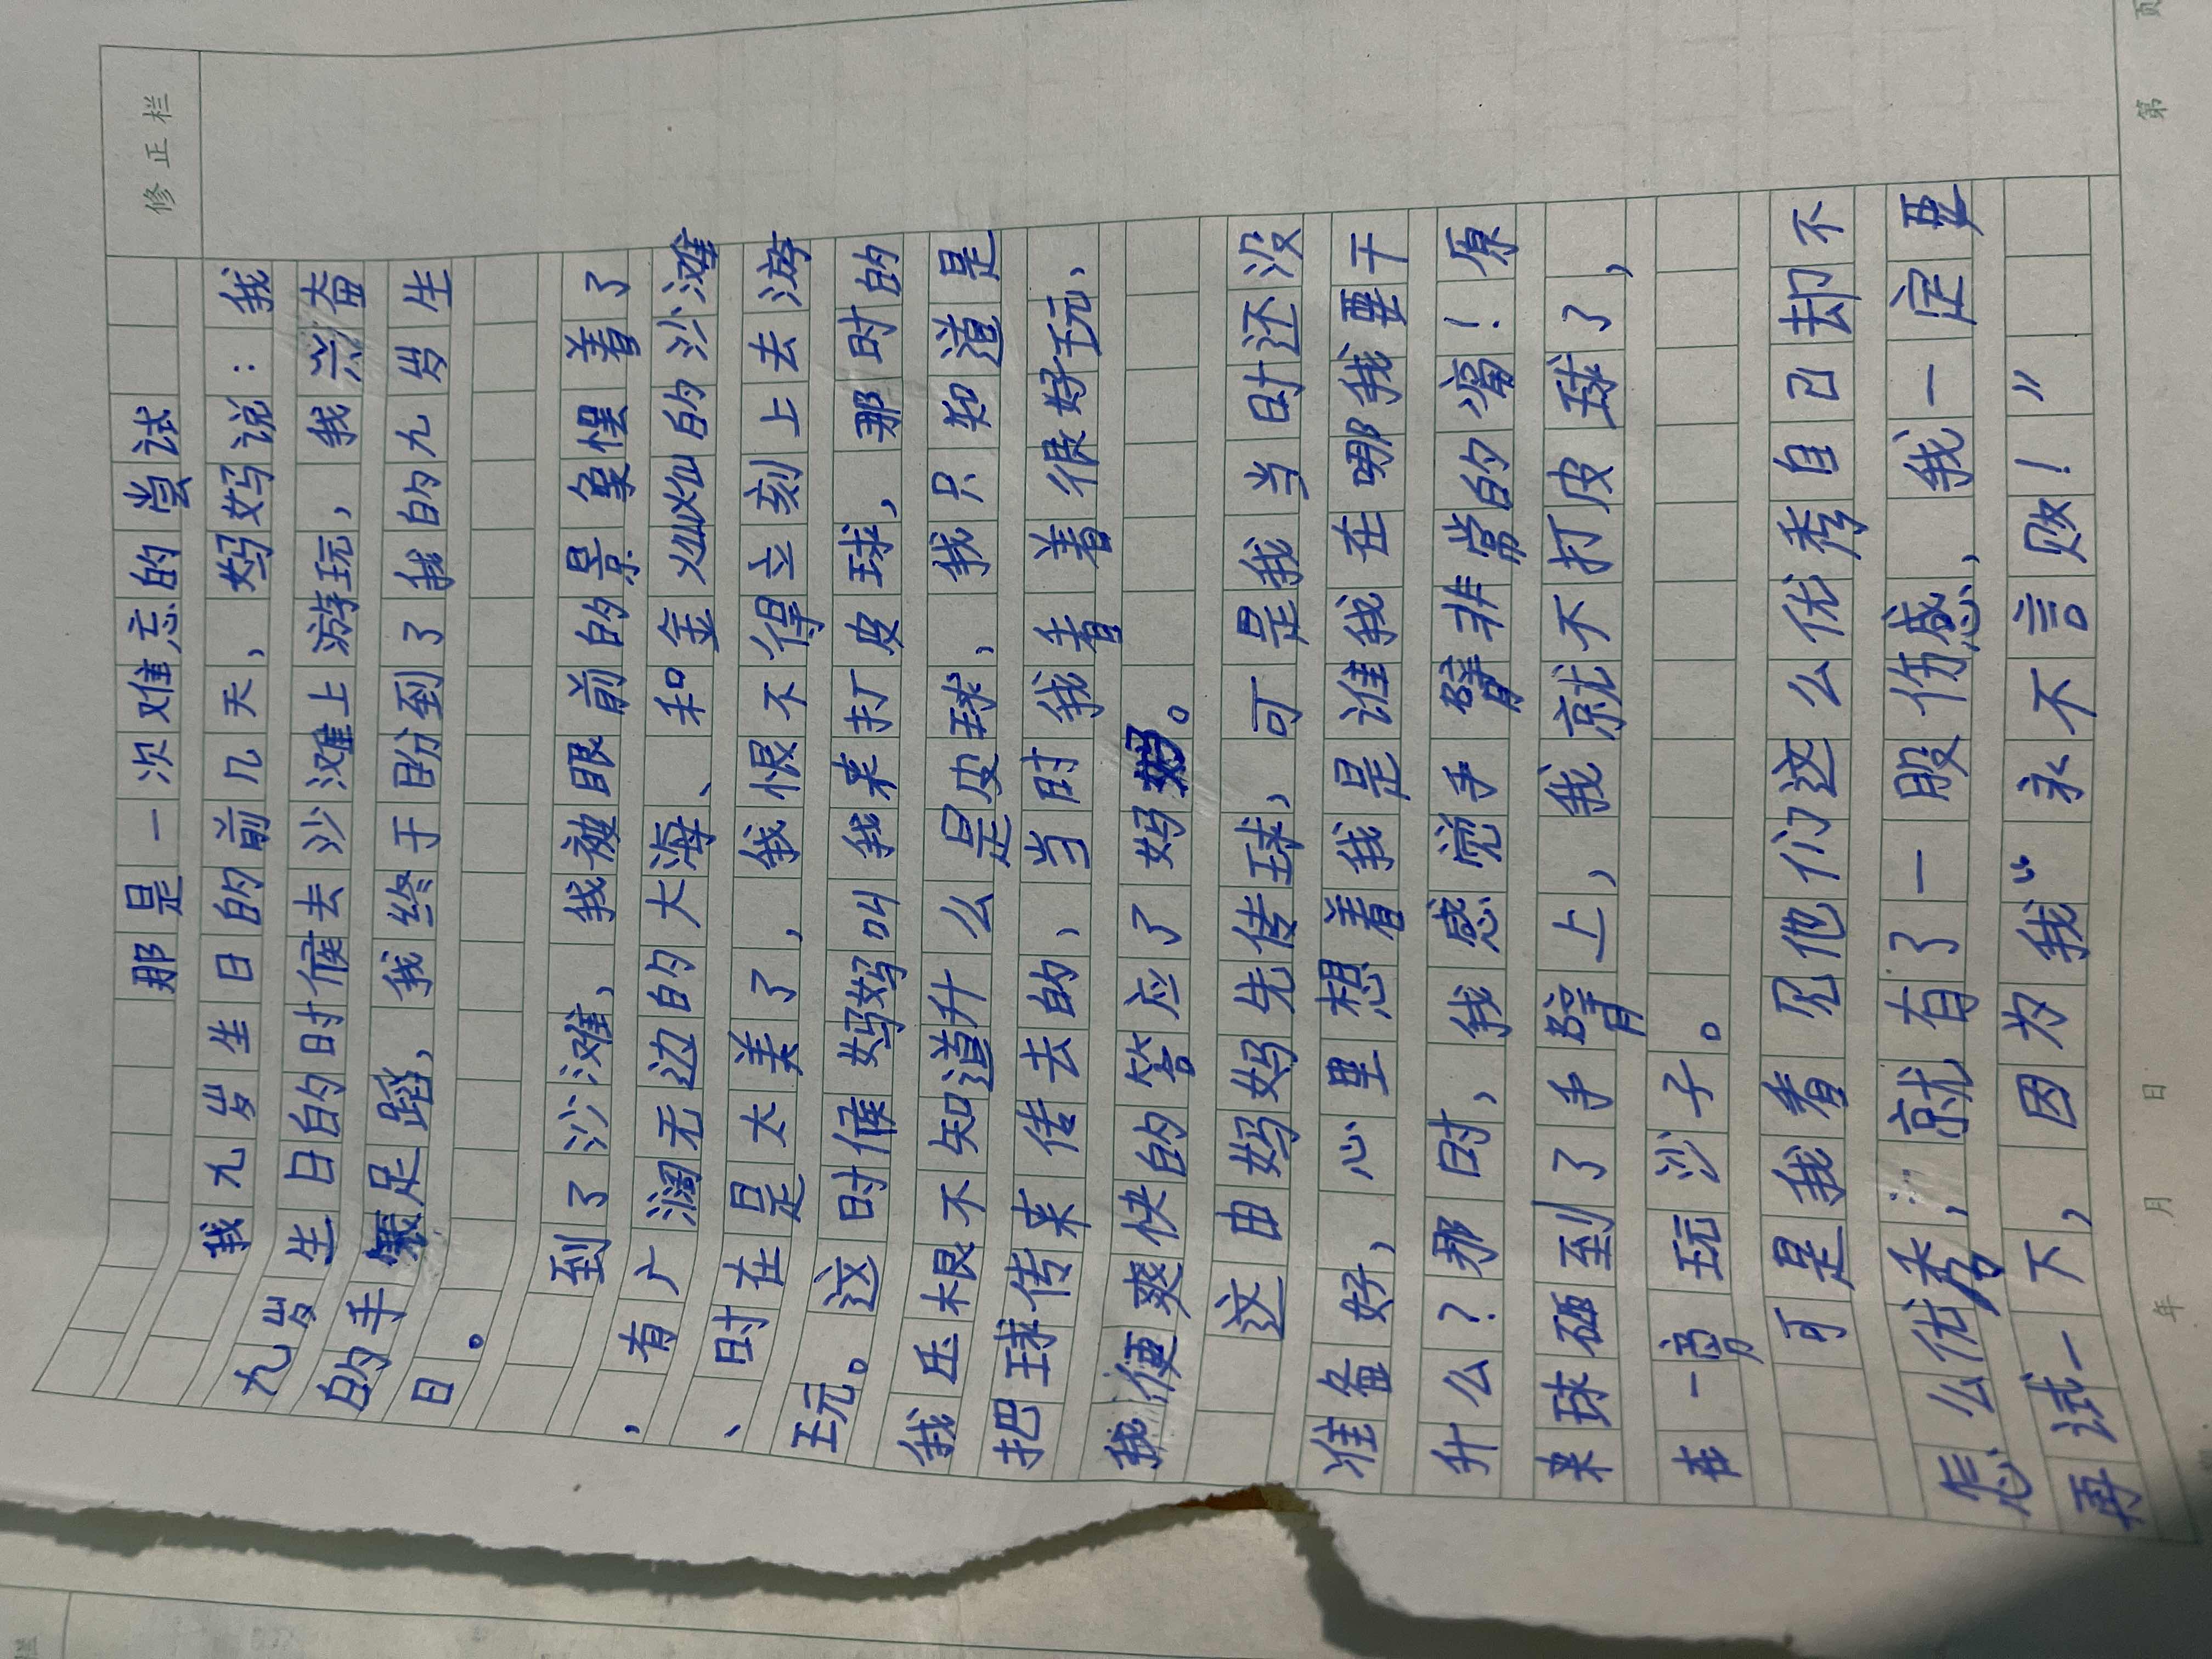 修正栏
那是一次难忘的尝试
我九岁生日的前几天，妈妈说：我
九岁生日的时候去沙滩上游玩，我兴奋
的手舞足蹈，我终于盼到了我的九岁生
日。
到了沙滩，我被眼前的景象惺着了
，有广阔无边的大海、和金灿灿的沙滩
、时在是太美了，我恨不得立刻上去游
玩。这时候妈妈叫我来打皮球，那时的
我压根不知道什么是皮球，我只知道是
把球传来传去的，当时我看着很好玩，
我便爽快的答应了妈妈。
这由妈妈先传球，可是我当时还没
准备好，心里想着我是谁我在哪我要干
什么？那时，我感觉手臂非常的痛！原
来球砸到了手臂上，我就不打皮球了，
在一旁玩沙子。
可是我看见他们这么优秀自己却不
怎么优秀，就有了一股伤感，我一定要
再试一下，因为我“永不言败！”
年 月 日 第 页